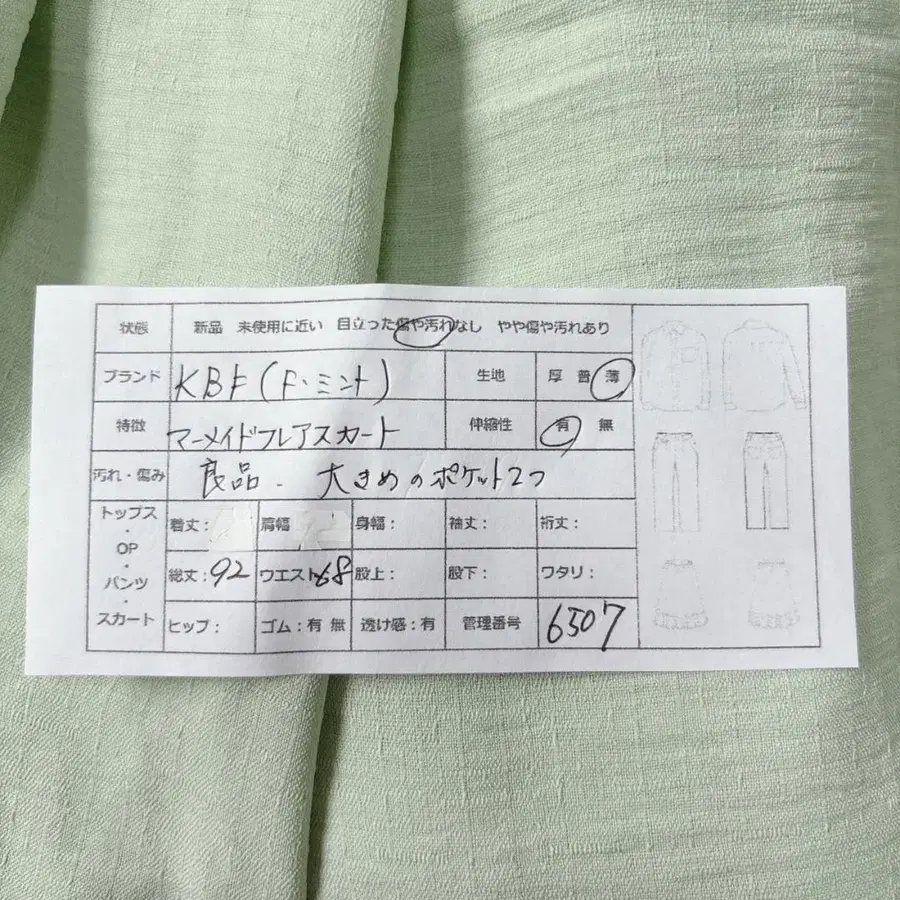 状態 新品 未使用に近い 目立った傷や汚れなし やや傷や汚れあり
ブランド KBF(F・ミント) 生地 厚 普 薄
特徴 マーメイドフレアスカート 伸縮性 有 無
汚れ・傷み 良品. 大きめのポケット2つ
トップス・OP・パンツ・スカート
着丈: 肩幅 身幅: 袖丈: 裄丈:
総丈:92 ウエスト68 股上: 股下: ワタリ:
ヒップ: ゴム:有 無 透け感:有 管理番号 6507